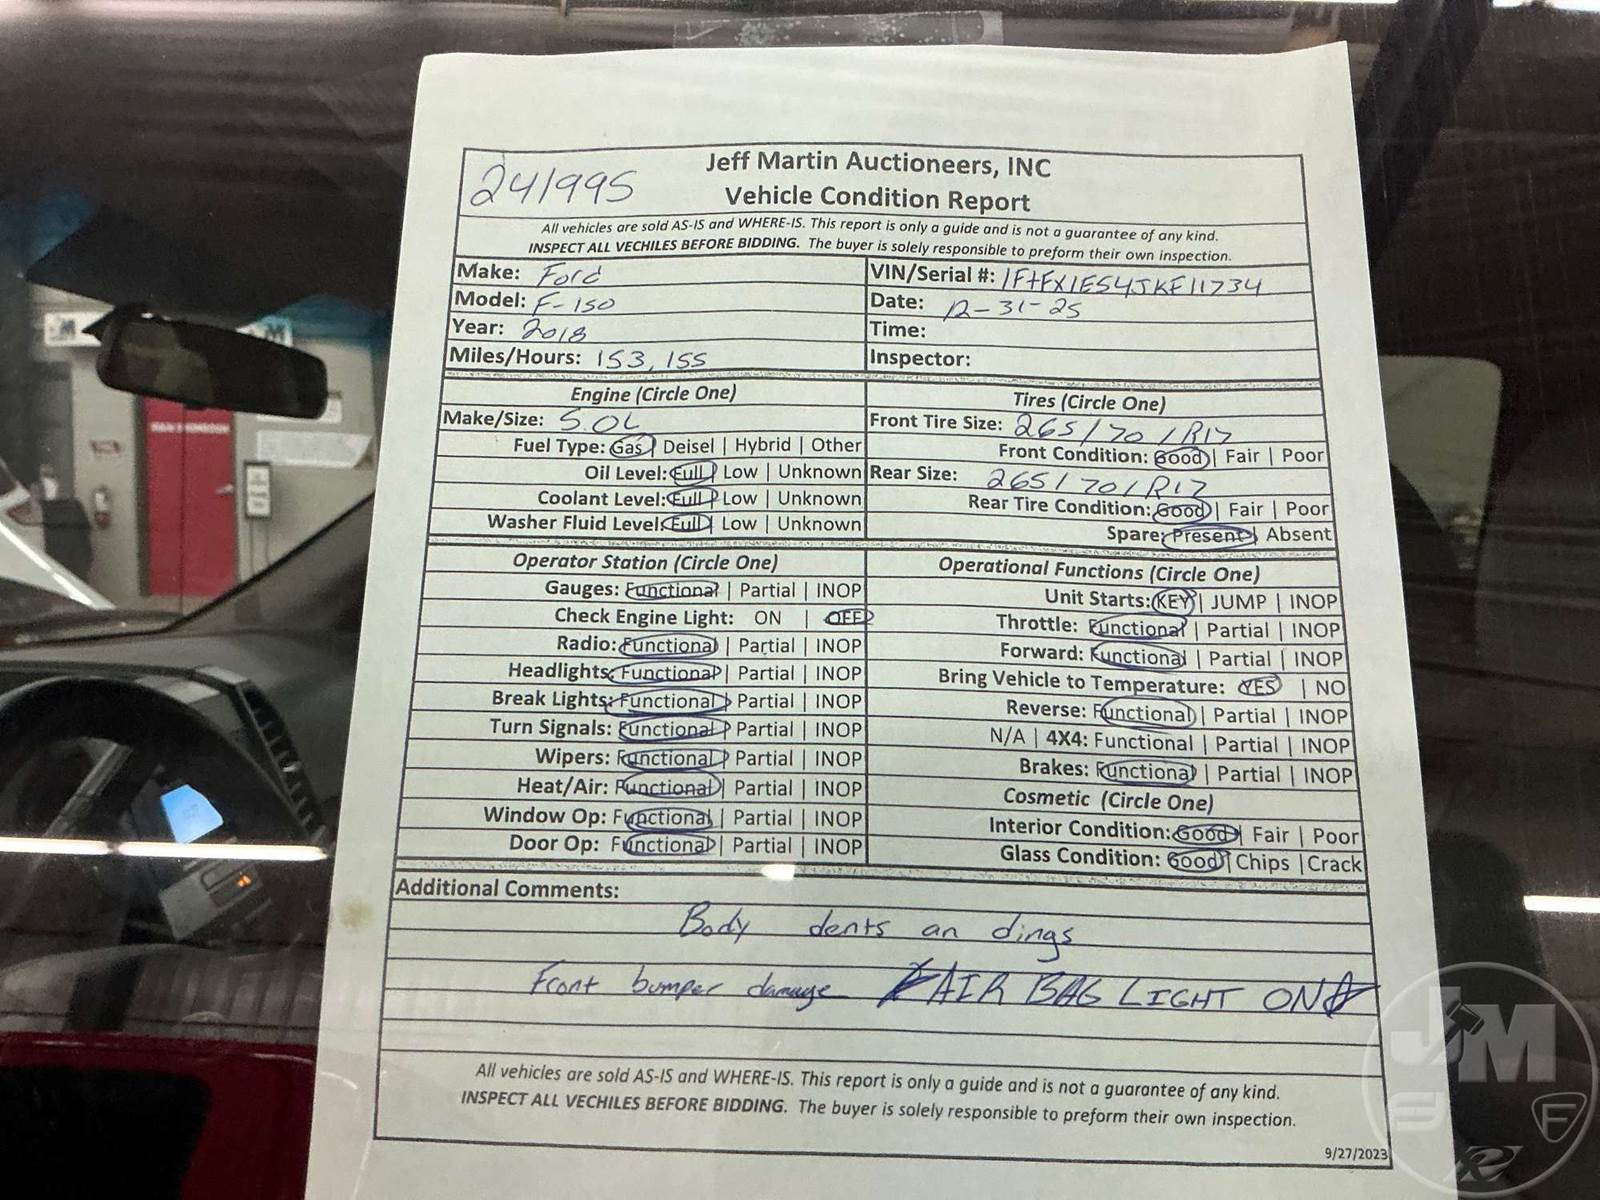 241995
Jeff Martin Auctioneers, INC
Vehicle Condition Report
All vehicles are sold AS-IS and WHERE-IS. This report is only a guide and is not a guarantee of any kind.
INSPECT ALL VECHILES BEFORE BIDDING. The buyer is solely responsible to preform their own inspection.
Make: Ford
VIN/Serial #: 1FtFX1E54JKE11734
Model: F-150
Date: 12-31-25
Year: 2018
Time:
Miles/Hours: 153,155
Inspector:
Engine (Circle One)
Tires (Circle One)
Make/Size: 5.0L
Front Tire Size: 265/70/R17
Fuel Type: Gas | Deisel | Hybrid | Other
Front Condition: Good | Fair | Poor
Oil Level: Full | Low | Unknown
Rear Size: 265/70/R17
Coolant Level: Full | Low | Unknown
Rear Tire Condition: Good | Fair | Poor
Washer Fluid Level: Full | Low | Unknown
Spare: Present | Absent
Operator Station (Circle One)
Operational Functions (Circle One)
Gauges: Functional | Partial | INOP
Unit Starts: KEY | JUMP | INOP
Check Engine Light: ON | OFF
Throttle: Functional | Partial | INOP
Radio: Functional | Partial | INOP
Forward: Functional | Partial | INOP
Headlights: Functional | Partial | INOP
Bring Vehicle to Temperature: YES | NO
Break Lights: Functional | Partial | INOP
Reverse: Functional | Partial | INOP
Turn Signals: Functional | Partial | INOP
N/A | 4X4: Functional | Partial | INOP
Wipers: Functional | Partial | INOP
Brakes: Functional | Partial | INOP
Heat/Air: Functional | Partial | INOP
Cosmetic (Circle One)
Window Op: Functional | Partial | INOP
Interior Condition: Good | Fair | Poor
Door Op: Functional | Partial | INOP
Glass Condition: Good | Chips | Crack
Additional Comments:
Body dents an dings
Front bumper damage AIR BAG LIGHT ON
All vehicles are sold AS-IS and WHERE-IS. This report is only a guide and is not a guarantee of any kind.
INSPECT ALL VECHILES BEFORE BIDDING. The buyer is solely responsible to preform their own inspection.
9/27/2023
JM